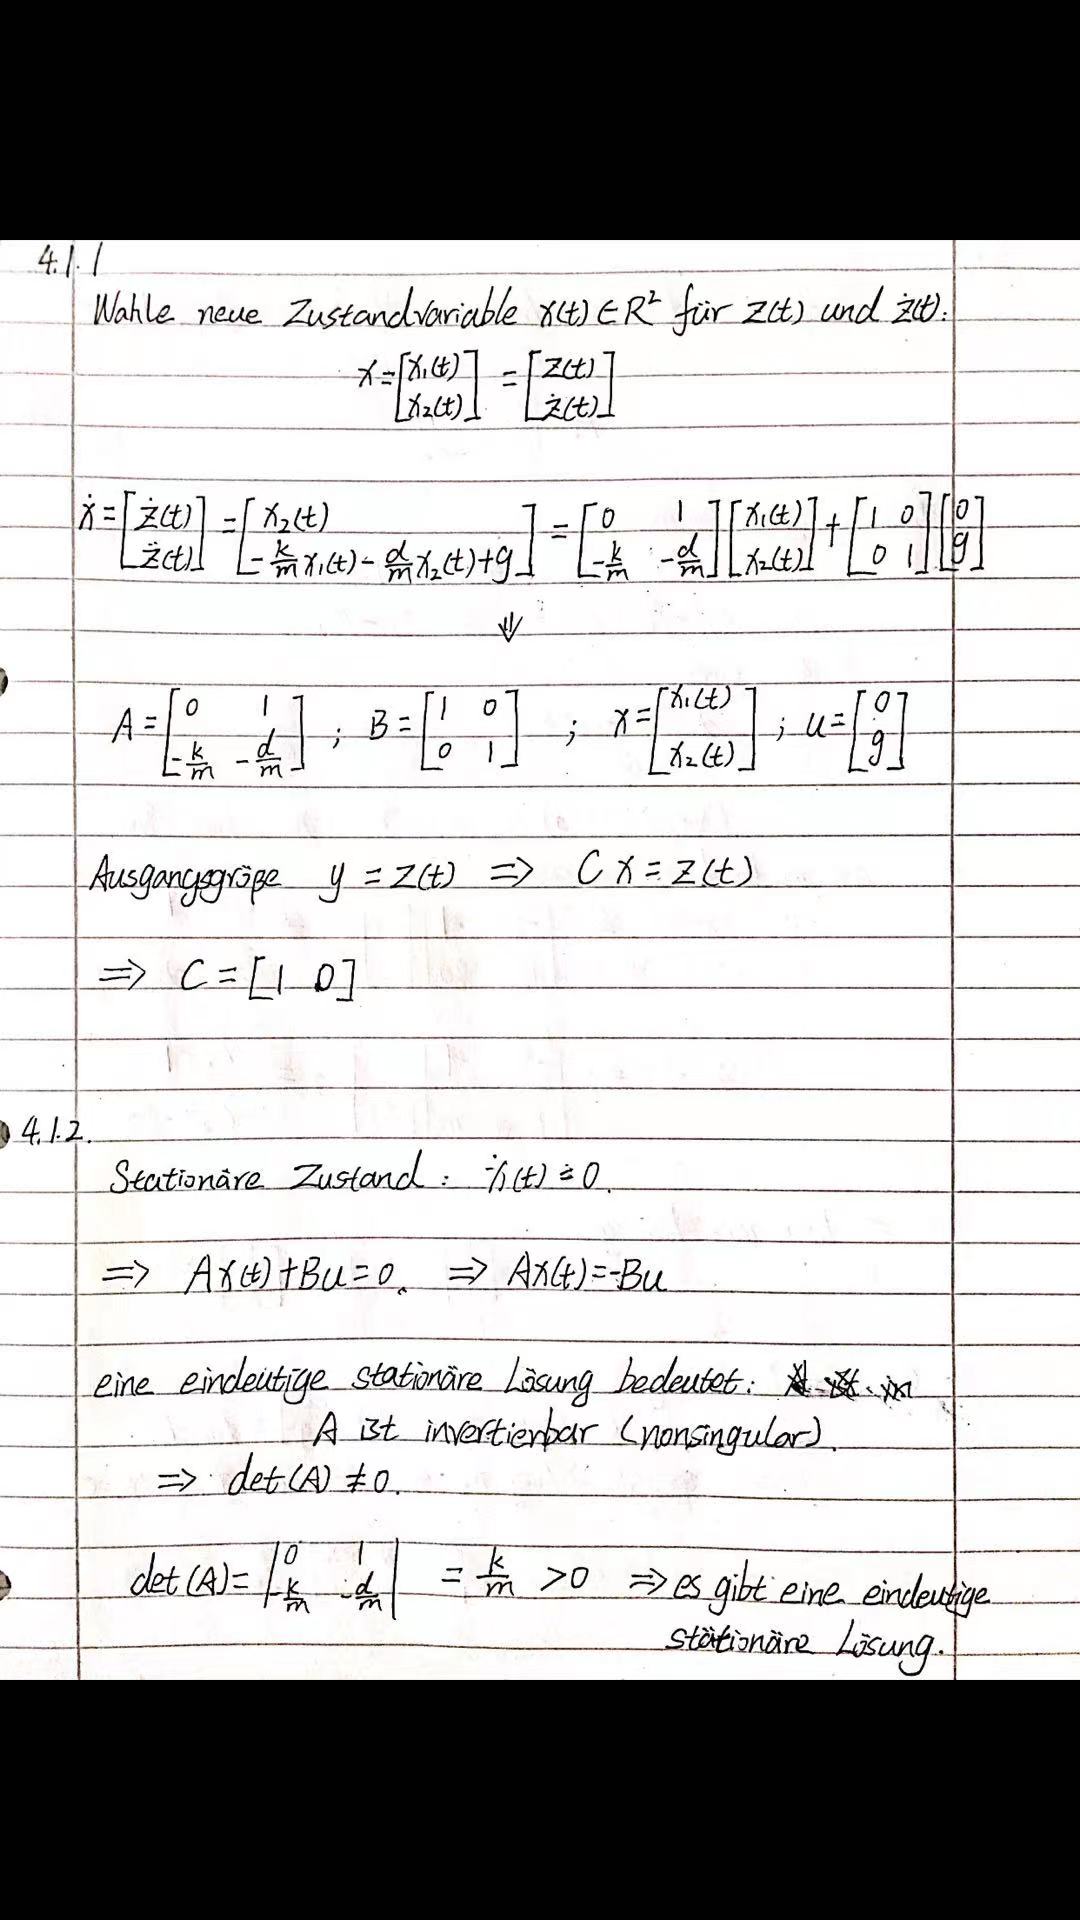 4.1.1
Wahle neue Zustandvariable x(t) ∈ R² für z(t) und ż(t):
x = [x₁(t); x₂(t)] = [z(t); ż(t)]
ẋ = [ż(t); z̈(t)] = [x₂(t); -k/m x₁(t) - d/m x₂(t) + g] = [0 1; -k/m -d/m] [x₁(t); x₂(t)] + [1 0; 0 1] [0; g]
⇓
A = [0 1; -k/m -d/m] ; B = [1 0; 0 1] ; x = [x₁(t); x₂(t)] ; u = [0; g]
Ausgangsgröße y = z(t) ⇒ C x = z(t)
⇒ C = [1 0]
4.1.2.
Stationäre Zustand : (t) = 0.
⇒ Ax(t) + Bu = 0. ⇒ Ax(t) = -Bu
eine eindeutige stationäre Lösung bedeutet:
A ist invertierbar (nonsingular).
⇒ det(A) ≠ 0.
det(A) = |0 1; -k/m -d/m| = k/m > 0 ⇒ es gibt eine eindeutige
stationäre Lösung.